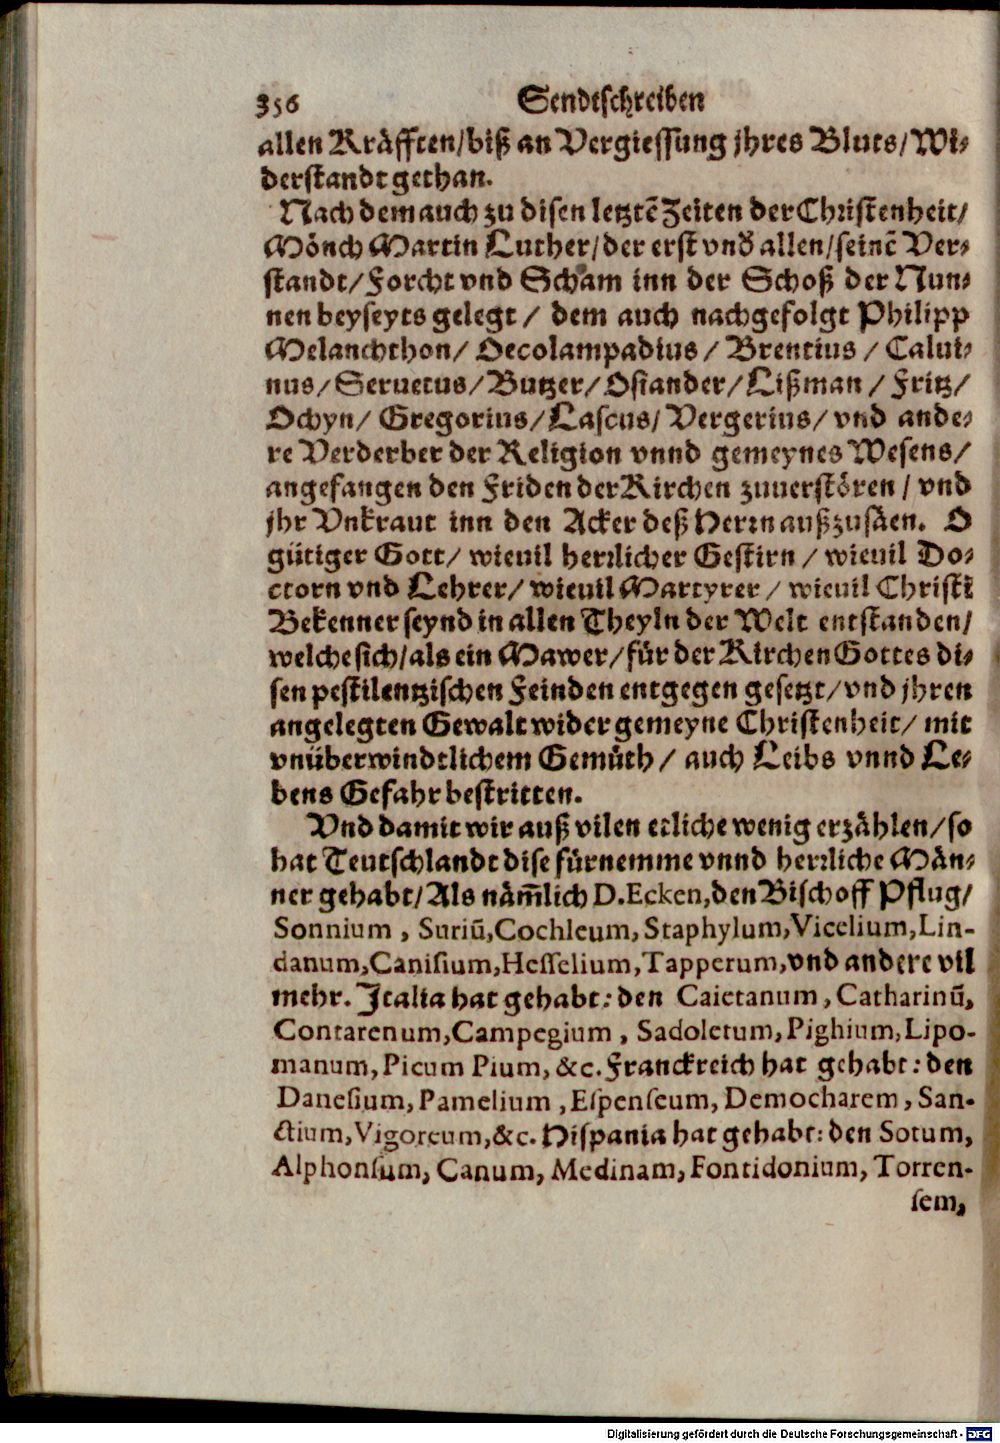 356 Sendtschreiben
allen Kräfften/biß an Vergiessung jhres Bluts/Wi-
derstandt gethan.
Nach dem auch zu disen letztẽ Zeiten der Christenheit/
Mönch Martin Luther/der erst vnd̃ allen/seinẽ Ver-
standt/Forcht vnd Scham inn der Schoß der Nun-
nen beyseyts gelegt/ dem auch nachgefolgt Philipp
Melanchthon/ Oecolampadius/ Brentius/ Calui-
nus/Seruetus/Butzer/Osiander/Lißman/ Fritz/
Ochyn/ Gregorius/Lascus/Vergerius/ vnd ande-
re Verderber der Religion vnnd gemeynes Wesens/
angefangen den Friden der Kirchen zuuerstören/ vnd
jhr Vnkraut inn den Acker deß Herrn außzusäen. O
gütiger Gott/ wieuil herrlicher Gestirn/ wieuil Do-
ctorn vnd Lehrer/ wieuil Martyrer/ wieuil Christi
Bekenner seynd in allen Theyln der Welt entstanden/
welche sich/als ein Mawer/für der Kirchen Gottes di-
sen pestilentzischen Feinden entgegen gesetzt/vnd jhren
angelegten Gewalt wider gemeyne Christenheit/ mit
vnüberwindtlichem Gemüth/ auch Leibs vnnd Le-
bens Gefahr bestritten.
Vnd damit wir auß vilen etliche wenig erzählen/so
hat Teutschlandt dise fürnemme vnnd herrliche Män-
ner gehabt/Als näm̃lich D.Ecken,den Bischoff Pflug/
Sonnium, Suriũ,Cochleum,Staphylum,Vicelium,Lin-
danum,Canisium,Hesselium,Tapperum,vnd andere vil
mehr. Italia hat gehabt: den Caietanum, Catharinũ,
Contarenum,Campegium, Sadoletum,Pighium,Lipo-
manum,Picum Pium,&c.Franckreich hat gehabt: den
Danesium,Pamelium,Espenseum,Democharem,San-
ctium,Vigoreum,&c.Hispania hat gehabt: den Sotum,
Alphonsum,Canum,Medinam,Fontidonium,Torren-
sem,
Digitalisierung gefördert durch die Deutsche Forschungsgemeinschaft - DFG